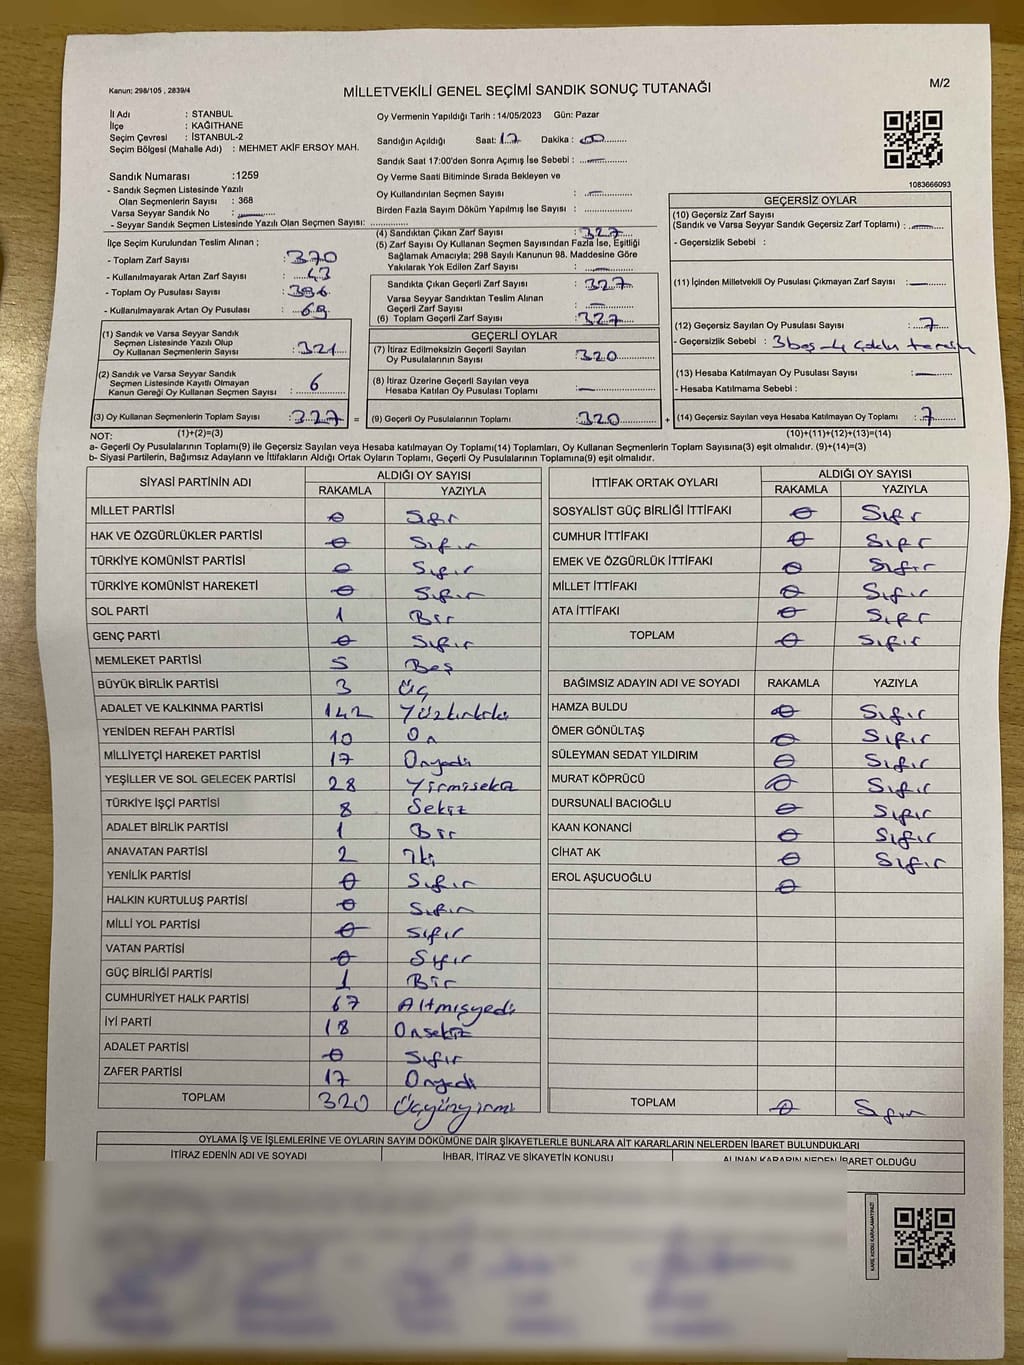 Kanun: 298/105 , 2839/4
MİLLETVEKİLİ GENEL SEÇİMİ SANDIK SONUÇ TUTANAĞI
M/2
İl Adı : STANBUL
İlçe : KAĞITHANE
Seçim Çevresi : İSTANBUL-2
Seçim Bölgesi (Mahalle Adı) : MEHMET AKİF ERSOY MAH.
Sandık Numarası :1259
- Sandık Seçmen Listesinde Yazılı
Olan Seçmenlerin Sayısı : 368
Varsa Seyyar Sandık No :
- Seyyar Sandık Seçmen Listesinde Yazılı Olan Seçmen Sayısı:
İlçe Seçim Kurulundan Teslim Alınan ;
- Toplam Zarf Sayısı : 370
- Kullanılmayarak Artan Zarf Sayısı : 43
- Toplam Oy Pusulası Sayısı : 396
- Kullanılmayarak Artan Oy Pusulası : 69
(1) Sandık ve Varsa Seyyar Sandık
Seçmen Listesinde Yazılı Olup
Oy Kullanan Seçmenlerin Sayısı : 321
(2) Sandık ve Varsa Seyyar Sandık
Seçmen Listesinde Kayıtlı Olmayan
Kanun Gereği Oy Kullanan Seçmen Sayısı : 6
(3) Oy Kullanan Seçmenlerin Toplam Sayısı : 327 =
Oy Vermenin Yapıldığı Tarih : 14/05/2023 Gün: Pazar
Sandığın Açıldığı Saat: 17 Dakika : 00
Sandık Saat 17:00'den Sonra Açımış İse Sebebi :
Oy Verme Saati Bitiminde Sırada Bekleyen ve
Oy Kullandırılan Seçmen Sayısı :
Birden Fazla Sayım Döküm Yapılmış İse Sayısı :
(4) Sandıktan Çıkan Zarf Sayısı : 327
(5) Zarf Sayısı Oy Kullanan Seçmen Sayısından Fazla İse, Eşitliği
Sağlamak Amacıyla; 298 Sayılı Kanunun 98. Maddesine Göre
Yakılarak Yok Edilen Zarf Sayısı :
Sandıkta Çıkan Geçerli Zarf Sayısı : 327
Varsa Seyyar Sandıktan Teslim Alınan
Geçerli Zarf Sayısı :
(6) Toplam Geçerli Zarf Sayısı : 327
GEÇERLİ OYLAR
(7) İtiraz Edilmeksizin Geçerli Sayılan
Oy Pusulalarının Sayısı : 320
(8) İtiraz Üzerine Geçerli Sayılan veya
Hesaba Katılan Oy Pusulası Toplamı :
(9) Geçerli Oy Pusulalarının Toplamı : 320 +
1083666093
GEÇERSİZ OYLAR
(10) Geçersiz Zarf Sayısı
(Sandık ve Varsa Seyyar Sandık Geçersiz Zarf Toplamı) :
- Geçersizlik Sebebi :
(11) İçinden Milletvekili Oy Pusulası Çıkmayan Zarf Sayısı :
(12) Geçersiz Sayılan Oy Pusulası Sayısı : 7
- Geçersizlik Sebebi : 3 boş - 4 çoklu
(13) Hesaba Katılmayan Oy Pusulası Sayısı :
- Hesaba Katılmama Sebebi :
(14) Geçersiz Sayılan veya Hesaba Katılmayan Oy Toplamı : 7
NOT: (1)+(2)=(3) (10)+(11)+(12)+(13)=(14)
a- Geçerli Oy Pusulalarının Toplamı(9) ile Geçersiz Sayılan veya Hesaba katılmayan Oy Toplamı(14) Toplamları, Oy Kullanan Seçmenlerin Toplam Sayısına(3) eşit olmalıdır. (9)+(14)=(3)
b- Siyasi Partilerin, Bağımsız Adayların ve İttifakların Aldığı Ortak Oyların Toplamı, Geçerli Oy Pusulalarının Toplamına(9) eşit olmalıdır.
SİYASİ PARTİNİN ADI ALDIĞI OY SAYISI
RAKAMLA YAZIYLA
MİLLET PARTİSİ 0 Sıfır
HAK VE ÖZGÜRLÜKLER PARTİSİ 0 Sıfır
TÜRKİYE KOMÜNİST PARTİSİ 0 Sıfır
TÜRKİYE KOMÜNİST HAREKETİ 0 Sıfır
SOL PARTİ 1 Bir
GENÇ PARTİ 0 Sıfır
MEMLEKET PARTİSİ 5 Beş
BÜYÜK BİRLİK PARTİSİ 3 Üç
ADALET VE KALKINMA PARTİSİ 142 Yüzkırkiki
YENİDEN REFAH PARTİSİ 10 On
MİLLİYETÇİ HAREKET PARTİSİ 17 Onyedi
YEŞİLLER VE SOL GELECEK PARTİSİ 28 Yirmisekiz
TÜRKİYE İŞÇİ PARTİSİ 8 Sekiz
ADALET BİRLİK PARTİSİ 1 Bir
ANAVATAN PARTİSİ 2 İki
YENİLİK PARTİSİ 0 Sıfır
HALKIN KURTULUŞ PARTİSİ 0 Sıfır
MİLLİ YOL PARTİSİ 0 Sıfır
VATAN PARTİSİ 0 Sıfır
GÜÇ BİRLİĞİ PARTİSİ 1 Bir
CUMHURİYET HALK PARTİSİ 67 Altmışyedi
İYİ PARTİ 18 Onsekiz
ADALET PARTİSİ 0 Sıfır
ZAFER PARTİSİ 17 Onyedi
TOPLAM 320 Üçyüzyirmi
İTTİFAK ORTAK OYLARI ALDIĞI OY SAYISI
RAKAMLA YAZIYLA
SOSYALİST GÜÇ BİRLİĞİ İTTİFAKI 0 Sıfır
CUMHUR İTTİFAKI 0 Sıfır
EMEK VE ÖZGÜRLÜK İTTİFAKI 0 Sıfır
MİLLET İTTİFAKI 0 Sıfır
ATA İTTİFAKI 0 Sıfır
TOPLAM 0 Sıfır
BAĞIMSIZ ADAYIN ADI VE SOYADI RAKAMLA YAZIYLA
HAMZA BULDU 0 Sıfır
ÖMER GÖNÜLTAŞ 0 Sıfır
SÜLEYMAN SEDAT YILDIRIM 0 Sıfır
MURAT KÖPRÜCÜ 0 Sıfır
DURSUNALİ BACIOĞLU 0 Sıfır
KAAN KONANCİ 0 Sıfır
CİHAT AK 0 Sıfır
EROL AŞUCUOĞLU 0
TOPLAM 0 Sıfır
OYLAMA İŞ VE İŞLEMLERİNE VE OYLARIN SAYIM DÖKÜMÜNE DAİR ŞİKAYETLERLE BUNLARA AİT KARARLARIN NELERDEN İBARET BULUNDUKLARI
İTİRAZ EDENİN ADI VE SOYADI İHBAR, İTİRAZ VE ŞİKAYETİN KONUSU ALINAN KARARIN NEDEN İBARET OLDUĞU
KARE KODU KARALAMAYINIZ!